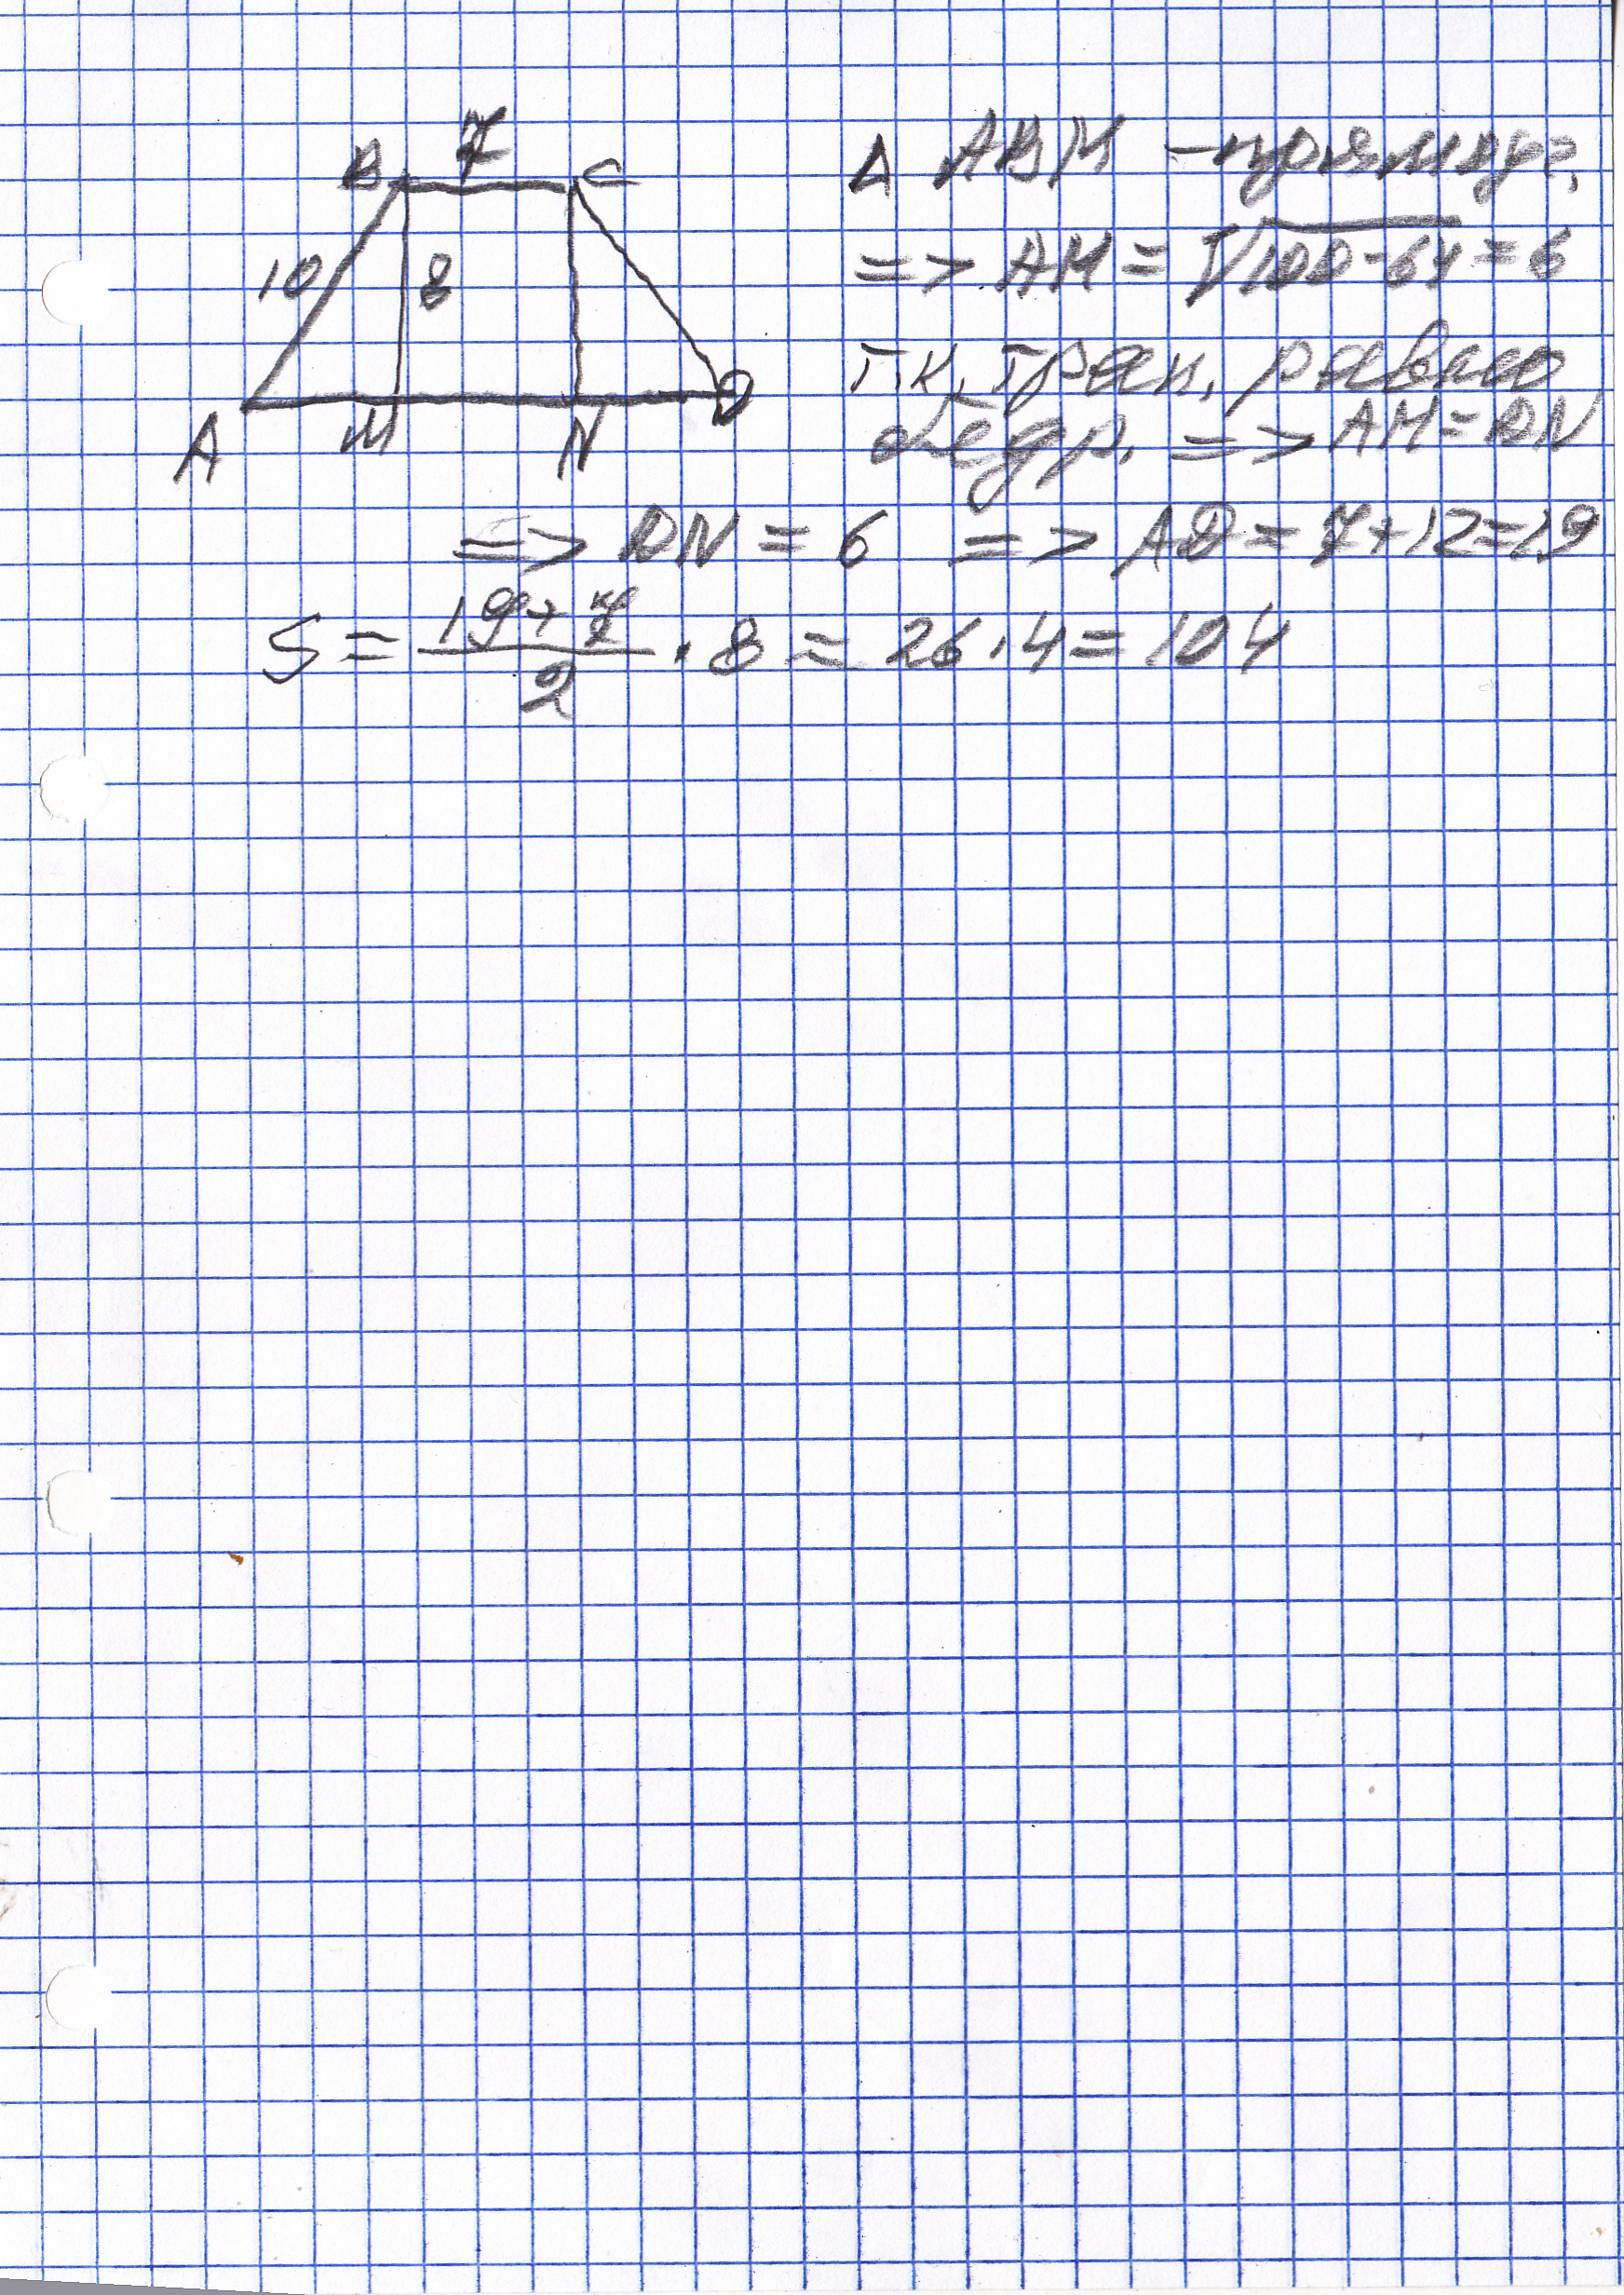 B 7 C
10 8
A M N D
Δ ABM – прямоуг.
=> AM = √100-64 = 6
т.к. трап. равно
бедр. => AM = DN
=> DN = 6 => AD = 7+12=19
S = 19+7/2 · 8 = 26·4 = 104